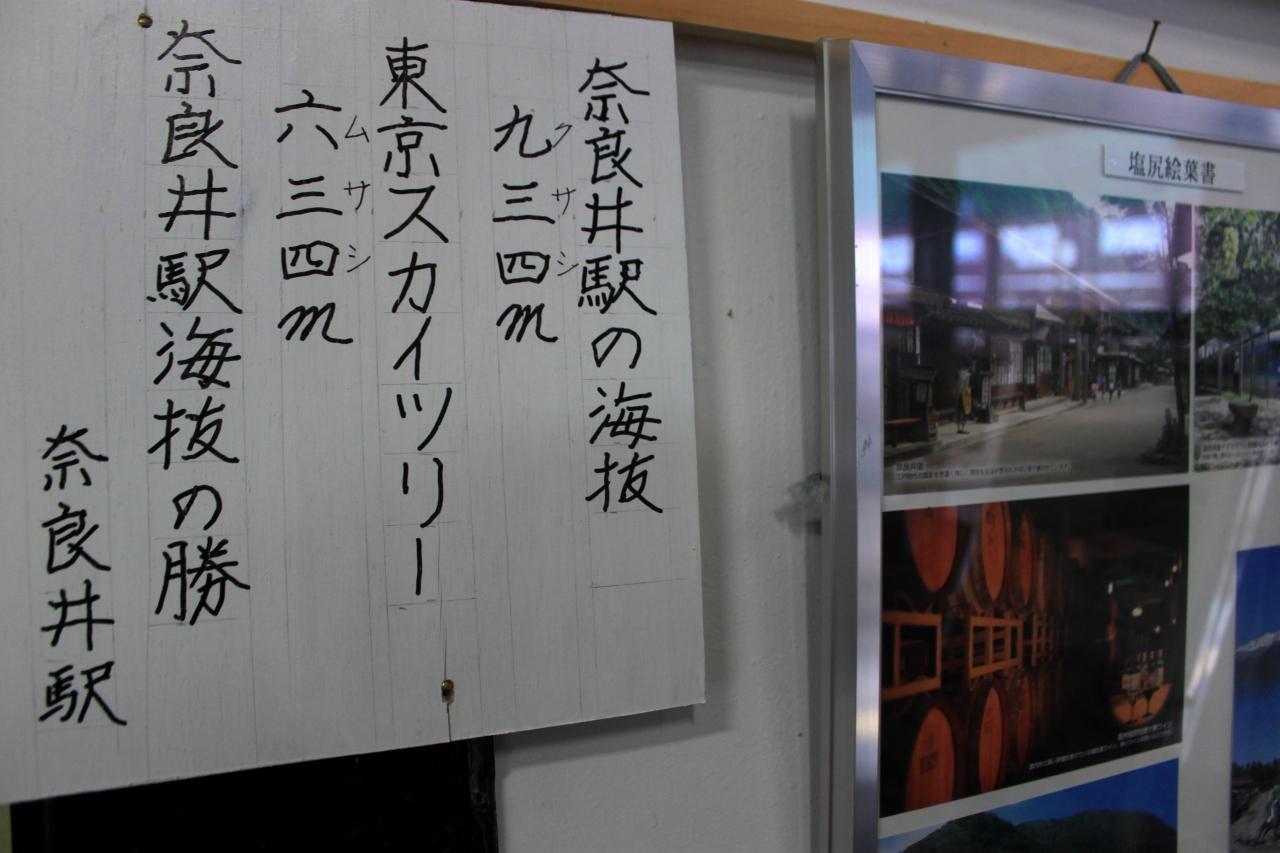 奈良井駅の海抜
九三四m
クサシ
東京スカイツリー
六三四m
ムサシ
奈良井駅海抜の勝
奈良井駅
塩尻絵葉書
奈良井宿